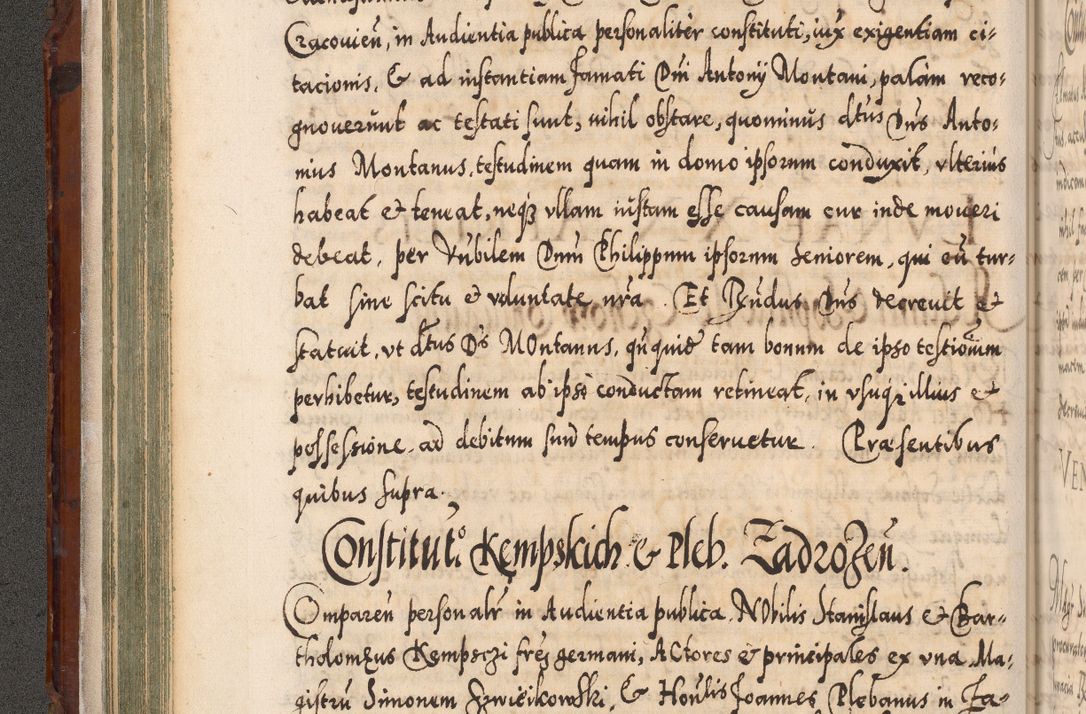 Cracovień, in Audientia publica personaliter constituti, iux exigentiam ci-
tacionis, & ad instantiam famati Dni Antonij Montani, palam reco-
gnoverunt ac testati sunt, nihil obstare, quominus dtus Dns Anto-
nius Montanus, testudinem quam in domo ipsorum conduxit, vlterius
habeat et teneat, neqꝫ vllam iustam esse causam cur inde moveri
debeat, per Nubilem Dnm Philippum ipsorum seniorem, qui eū tur-
bat sine scitu et voluntate nra. Et Rndus Dns decrevit et
statuit, vt dtus Ds Montanus, qñquidē tam bonum de ipso testioīum
perhibetur, testudinem ab ipso conductam retineat, in vsuqꝫ illius et
possessione, ad debitum suū tempus conservetur. Præsentibus
quibus supra.
Constitutº. Kempskich & Pleb. Zadrożeñ.
Compareñ personalr in Audientia publica, Nobilis Stanislaus et Bar-
tholomęus Kempsczi frēs germani, Actores et principales ex vna. Ma-
gistrū Simonem & Honlis Joannes Plebanus in Za-